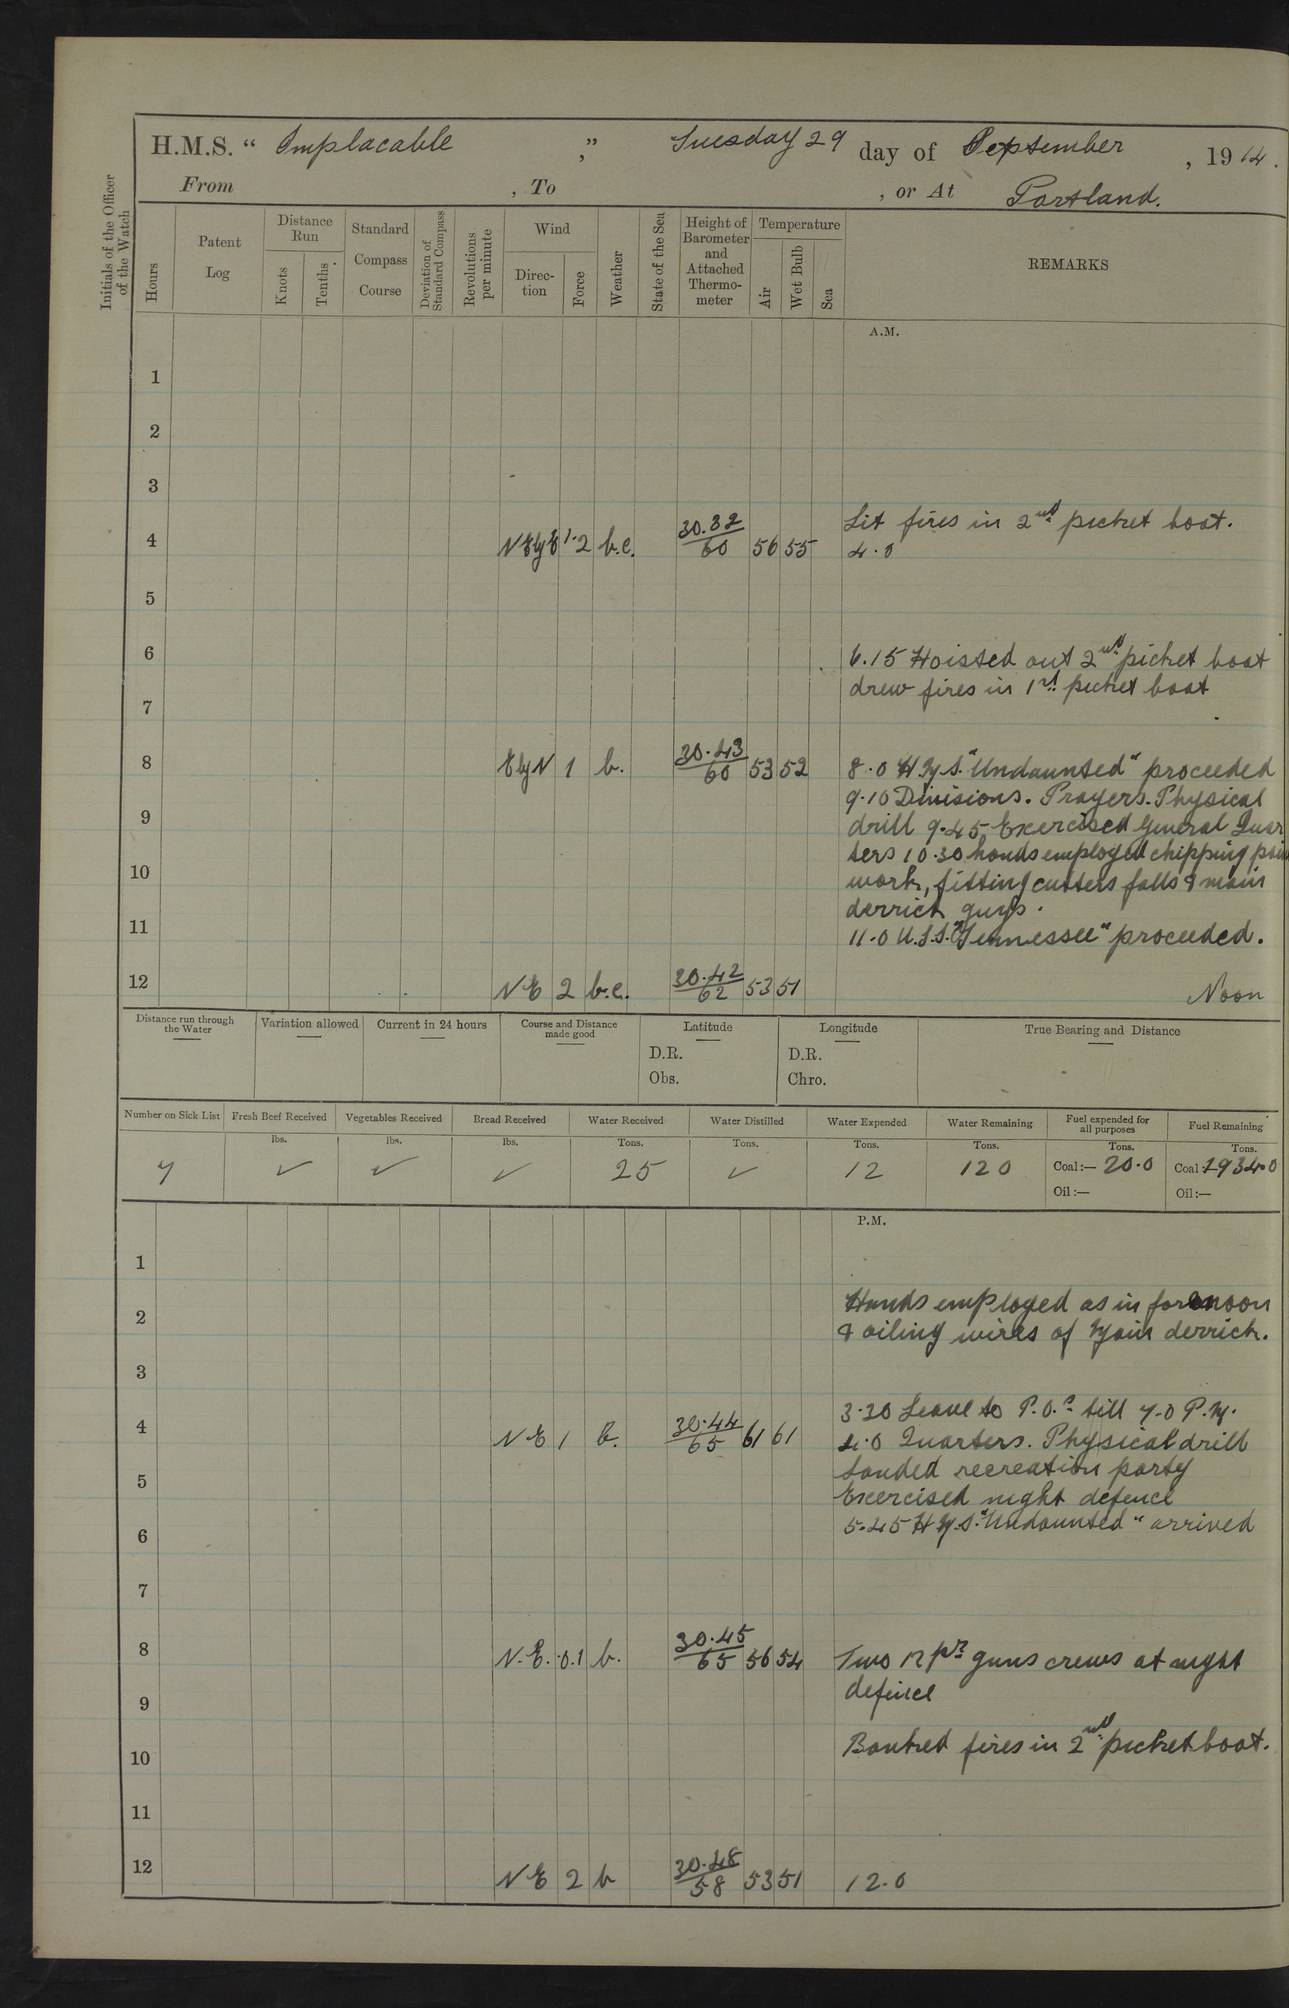 H.M.S. “ Implacable ,” Tuesday 29 day of September , 1914.
From , To , or At Portland.
Initials of the Officer of the Watch
Hours
Patent Log
Distance Run
Knots
Tenths
Standard Compass Course
Deviation of Standard Compass
Revolutions per minute
Wind
Direc-tion
Force
Weather
State of the Sea
Height of Barometer and Attached Thermo-meter
Temperature
Air
Wet Bulb
Sea
REMARKS
A.M.
1
2
3
Lit fires in 2nd picket boat.
4 NEbyE 1.2 b.c. 30.32/60 56 55 4.0
5
6 6.15 Hoisted out 2nd picket boat
drew fires in 1st picket boat
7
8 EbyN 1 b. 30.43/60 53 52 8.0 H.M.S. "Undaunted" proceeded
9.10 Divisions. Prayers. Physical
9 drill 9.45 Exercised General Quar
ters 10.30 hands employed chipping
10 work, fitting cutters falls & main
derrick guys.
11 11.0 U.S.S. "Tennessee" proceeded.
12 NE 2 b.c. 30.42/62 53 51 Noon
Distance run through the Water
Variation allowed
Current in 24 hours
Course and Distance made good
Latitude
D.R.
Obs.
Longitude
D.R.
Chro.
True Bearing and Distance
Number on Sick List Fresh Beef Received Vegetables Received Bread Received Water Received Water Distilled Water Expended Water Remaining Fuel expended for all purposes Fuel Remaining
lbs. lbs. lbs. Tons. Tons. Tons. Tons. Tons. Tons.
7 ✓ ✓ ✓ 25 ✓ 12 120 Coal:— 20.0 Coal 1934.0
Oil:— Oil:—
P.M.
1
Hands employed as in forenoon
2 & oiling wires of Main derrick.
3
3.30 Leave to P.O.s till 7.0 P.M.
4 NE 1 b. 30.44/65 61 61 4.0 Quarters. Physical drill
Landed recreation party
5 Exercised night defence
5.45 H.M.S. "Undaunted" arrived
6
7
8 N.E. 0.1 b. 30.45/65 56 54 Two 12 pr guns crews at night
defence
9
10 Banked fires in 2nd picket boat.
11
12 NE 2 b 30.48/58 53 51 12.0